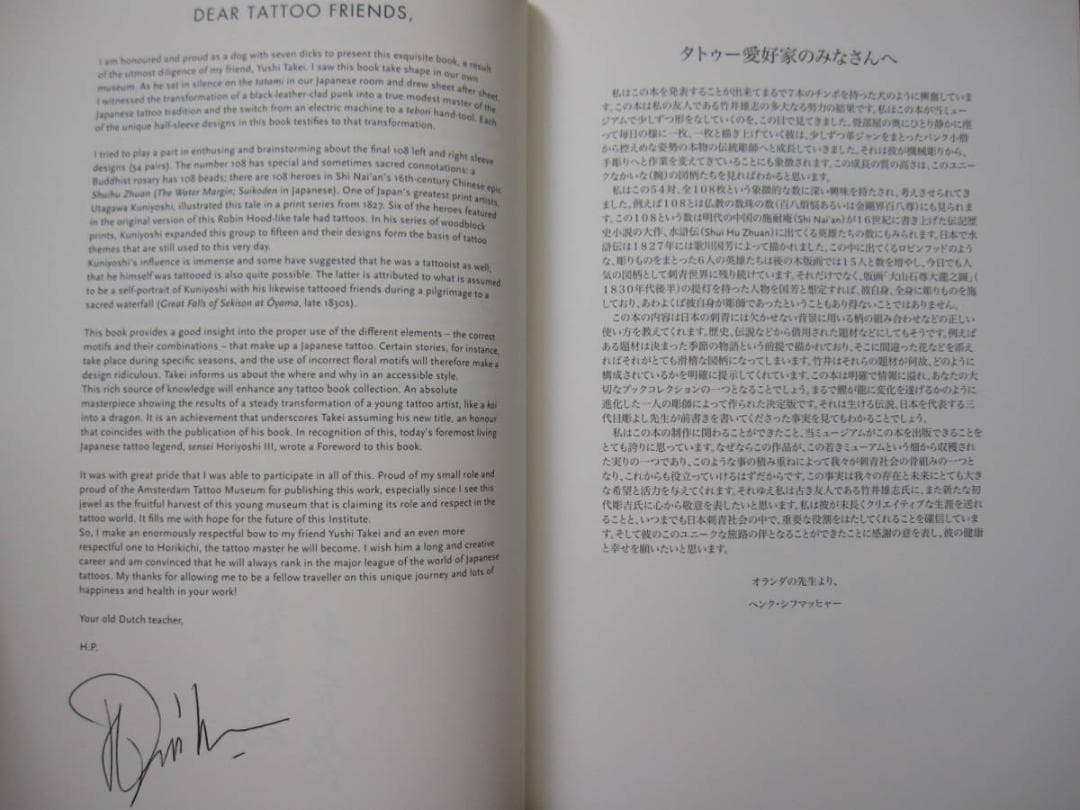 DEAR TATTOO FRIENDS,
I am honoured and proud as a dog with seven dicks to present this exquisite book, a result
of the utmost diligence of my friend, Yushi Takei. I saw this book take shape in our own
museum. As he sat in silence on the tatami in our Japanese room and drew sheet after sheet,
I witnessed the transformation of a black-leather-clad punk into a true modest master of the
Japanese tattoo tradition and the switch from an electric machine to a tebori hand-tool. Each
of the unique half-sleeve designs in this book testifies to that transformation.
I tried to play a part in enthusing and brainstorming about the final 108 left and right sleeve
designs (54 pairs). The number 108 has special and sometimes sacred connotations: a
Buddhist rosary has 108 beads; there are 108 heroes in Shi Nai'an's 16th-century Chinese epic
Shuihu Zhuan (The Water Margin; Suikoden in Japanese). One of Japan's greatest print artists,
Utagawa Kuniyoshi, illustrated this tale in a print series from 1827. Six of the heroes featured
in the original version of this Robin Hood-like tale had tattoos. In his series of woodblock
prints, Kuniyoshi expanded this group to fifteen and their designs form the basis of tattoo
themes that are still used to this very day.
Kuniyoshi's influence is immense and some have suggested that he was a tattooist as well;
that he himself was tattooed is also quite possible. The latter is attributed to what is assumed
to be a self-portrait of Kuniyoshi with his likewise tattooed friends during a pilgrimage to a
sacred waterfall (Great Falls of Sekison at Ōyama, late 1830s).
This book provides a good insight into the proper use of the different elements – the correct
motifs and their combinations – that make up a Japanese tattoo. Certain stories, for instance,
take place during specific seasons, and the use of incorrect floral motifs will therefore make a
design ridiculous. Takei informs us about the where and why in an accessible style.
This rich source of knowledge will enhance any tattoo book collection. An absolute
masterpiece showing the results of a steady transformation of a young tattoo artist, like a koi
into a dragon. It is an achievement that underscores Takei assuming his new title, an honour
that coincides with the publication of his book. In recognition of this, today's foremost living
Japanese tattoo legend, sensei Horiyoshi III, wrote a Foreword to this book.
It was with great pride that I was able to participate in all of this. Proud of my small role and
proud of the Amsterdam Tattoo Museum for publishing this work, especially since I see this
jewel as the fruitful harvest of this young museum that is claiming its role and respect in the
tattoo world. It fills me with hope for the future of this Institute.
So, I make an enormously respectful bow to my friend Yushi Takei and an even more
respectful one to Horikichi, the tattoo master he will become. I wish him a long and creative
career and am convinced that he will always rank in the major league of the world of Japanese
tattoos. My thanks for allowing me to be a fellow traveller on this unique journey and lots of
happiness and health in your work!
Your old Dutch teacher,
H.P.
タトゥー愛好家のみなさんへ
私はこの本を発表することが出来てまるで7本のチンポを持った犬のように興奮していま
す。この本は私の友人である竹井雄志の多大なる努力の結果です。私はこの本が当ミュー
ジアムで少しずつ形をなしていくのを、この目で見てきました。畳部屋の奥にひとり静かに座
って毎日の様に一枚、一枚と描き上げていく彼は、少しずつ革ジャンをまとったパンク小僧
から控えめな姿勢の本物の伝統彫師へと成長していきました。それは彼が機械彫りから、
手彫りへと作業を変えてきていることにも象徴されます。この成長の質の高さは、このユニー
クなかいな(腕)の図柄たちを見ればわかると思います。
私はこの54対、全108枚という象徴的な数に深い興味を持たされ、考えさせられてき
ました。例えば108とは仏教の数珠の数(百八煩悩あるいは金剛界百八尊)にも見られま
す。この108という数は明代の中国の施耐庵(Shi Nai'an)が16世紀に書き上げた伝記歴
史小説の大作、水滸伝(Shui Hu Zhuan)に出てくる英雄たちの数にもみられます。日本で水
滸伝は1827年には歌川国芳によって描かれました。この中に出てくるロビンフッドのよう
な、彫りものをまとった6人の英雄たちは後の木版画では15人と数を増やし、今日でも人
気の図柄として刺青世界に残り続けています。それだけでなく、版画「大山石尊大瀧之圖」(
1830年代後半)の提灯を持った人物を国芳と想定すれば、彼自身、全身に彫りものを施
しており、あわよくば彼自身が彫師であったということもあり得ないことではありません。
この本の内容は日本の刺青には欠かせない背景に用いる柄の組み合わせなどの正しい
使い方を教えてくれます。歴史、伝説などから借用された題材などにしてもそうです。例えば
ある題材は決まった季節の物語という前提で描かれており、そこに間違った花などを添え
ればそれがとても滑稽な図柄になってしまいます。竹井はそれらの題材が何故、どのように
構成されているかを明確に提示してくれています。この本は明確で情報に溢れ、あなたの大
切なブックコレクションの一つとなることでしょう。まるで鯉が龍に変化を遂げるかのように
進化した一人の彫師によって作られた決定版です。それは生ける伝説、日本を代表する三
代目彫よし先生が前書きを書いてくださった事実を見てもわかることでしょう。
私はこの本の制作に関わることができたこと、当ミュージアムがこの本を出版できることを
とても誇りに思っています。なぜならこの作品が、この若きミューアムという畑から収穫され
た実りの一つであり、このような事の積み重ねによって我々が刺青社会の骨組みの一つと
なり、これからも役立っていけるはずだからです。この事実は我々の存在と未来にとても大き
な希望と活力を与えてくれます。それゆえ私は古き友人である竹井雄志氏に、また新たな初
代彫吉氏に心から敬意を表したいと思います。私は彼が末長くクリエイティブな生涯を送れ
ることと、いつまでも日本刺青社会の中で、重要な役割をはたしてくれることを確信していま
す。そして彼のこのユニークな旅路の伴となることができたことに感謝の意を表し、彼の健康
と幸せを願いたいと思います。
オランダの先生より、
ヘンク・シフマッヒャー